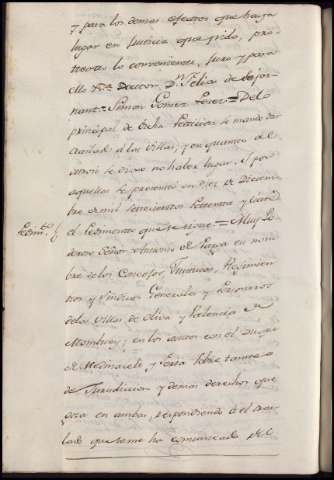 y para los demas efectos que haya
lugar en Justicia que pido, pro-
texto lo conveniente, juro y para
ello = Doctor Dn Felix de
nant = Simon Gomez Perez = Del
principal de dicha Peticion se mando dar
traslado a las Villas, y en quanto al
otrosi se dixo no haber lugar. Y por
aquellas se presentó en diez de Diciem-
bre de mil setecientos setenta y
Pedimto. el Pedimento que se sigue = Muy Po-
deroso Señor Antonio de en nom-
bre de los Concejos, Justicias, Regimien-
tos y Sindicos Generales y Personeros
de las Villas de Oliva y Valencia de
Mombuey; en los autos con el Duque
de Medinaceli, y Feria sobre tanteo
de Jurisdiccion y demas derechos que
goza en ambas, respondiendo á el tras-
lado que se me ha comunicado del